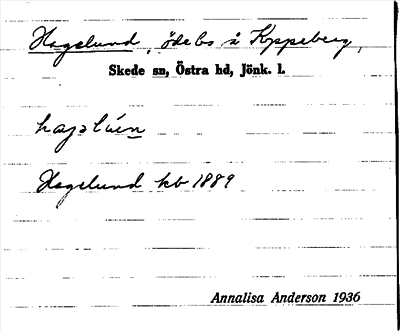 Hagelund, ödebs å Kyppeberg,
Skede sn, Östra hd, Jönk. l.
Hagelund kb 1889
Annalisa Anderson 1936